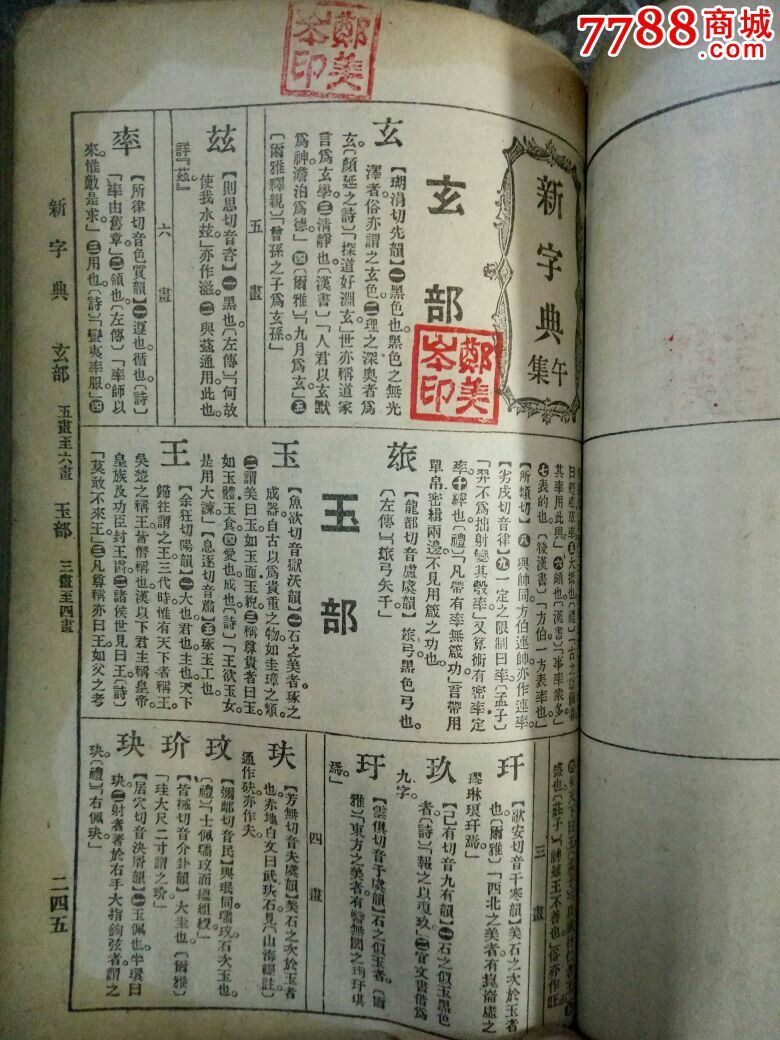 7788商城
鄭美岑印
新字典
午集
鄭美岑印
玄部
玄
【胡涓切先韻】㊀黑色也黑色之無光
澤者俗亦謂之玄色㊁理之深奧者爲
玄〔顏延之詩〕「探道好淵玄」世亦稱道家
言爲玄學㊂清靜也〔漢書〕「人君以玄默
爲神澹泊爲德」㊃〔爾雅〕「九月爲玄」㊄
〔爾雅釋親〕「曾孫之子爲玄孫」
五畫
玆
【則思切音咨】㊀黑也〔左傳〕「何故
使我水玆」亦作滋㊁與茲通用此也
詳「茲」
六畫
率
【所律切音色質韻】㊀遵也循也〔詩〕
「率由舊章」㊁領也〔左傳〕「率師以
來惟敵是求」㊂用也〔詩〕「蠻夷率服」㊃
其率用此與」㊅類也〔漢書〕「事率衆多」
㊆表的也〔後漢書〕「方伯一方表率也」
【所類切】㊇與帥同方伯連帥亦作連率
【劣戌切音律】㊈一定之限制曰率〔孟子〕
「羿不爲拙射變其彀率」又算術有密率定
率㊉繂也〔禮〕「凡帶有率無箴功」言帶用
單帛密緝兩邊不見用箴之功也
玈
【龍都切音盧虞韻】玈弓黑色弓也
〔左傳〕「玈弓矢千」
玉部
玉
【魚欲切音獄沃韻】㊀石之美者琢之
成器自古以爲貴重之物如圭璋之類
㊁謂美曰玉如玉面玉貌㊂稱尊貴者曰玉
如玉體玉食㊃愛也成也〔詩〕「王欲玉女
是用大諫」【息逐切音肅】㊄琢玉工也
王
【余狂切陽韻】㊀大也君也主也天下
歸往謂之王三代時惟有天下者稱王
吳楚之稱王皆僭稱也漢以下君主稱皇帝
皇族及功臣封王爵㊁諸侯世見曰王〔詩〕
「莫敢不來王」㊂凡尊稱亦曰王如父之考
三畫
玕
【歌安切音干寒韻】美石之次於玉者
也〔爾雅〕「西北之美者有崑崙虛之
璆琳琅玕焉」
玖
【己有切音九有韻】㊀石之似玉黑色
者〔詩〕「報之以瓊玖」㊁官文書借爲
九字
玗
【雲俱切音于虞韻】石之似玉者〔爾
雅〕「東方之美者有醫無閭之珣玗琪
焉」
四畫
玞
【芳無切音夫虞韻】美石之次於玉者
也赤地白文曰武玞石見〔山海經註〕
通作砆亦作夫
玟
【彌鄰切音民】與珉同瑞玟石次玉也
〔禮〕「士佩瑞玟而縕組綬」
玠
【吉械切音介卦韻】大圭也〔爾雅〕
「珪大尺二寸謂之玠」
玦
【居穴切音決屑韻】㊀玉佩也半環曰
玦㊁射者著於右手大指鉤弦者謂之
玦〔禮〕「右佩玦」
新字典 玄部 五畫至六畫 玉部 三畫至四畫 二四五